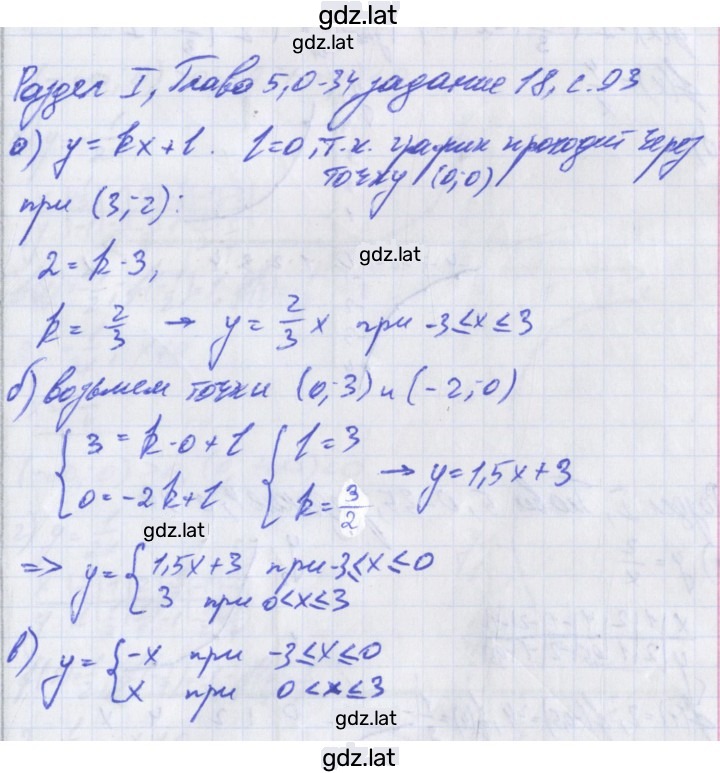 gdz.lat
gdz.lat
Раздел I, Глава 5, О-34 задание 18, с.93
а) y = kx + l. l = 0, т.к. график проходит через
точку (0;0)
при (3;2):
2 = k·3,
gdz.lat
k = 2/3 → y = 2/3 x при -3 ≤ x ≤ 3
б) возьмем точки (0;3) и (-2;0)
{3 = k·0 + l {l = 3
0 = -2k + l k = 3/2 → y = 1,5x + 3
gdz.lat
=> y = {1,5x + 3 при -3 ≤ x ≤ 0
3 при 0 < x ≤ 3
в) y = {-x при -3 ≤ x ≤ 0
x при 0 < x ≤ 3
gdz.lat
gdz.lat